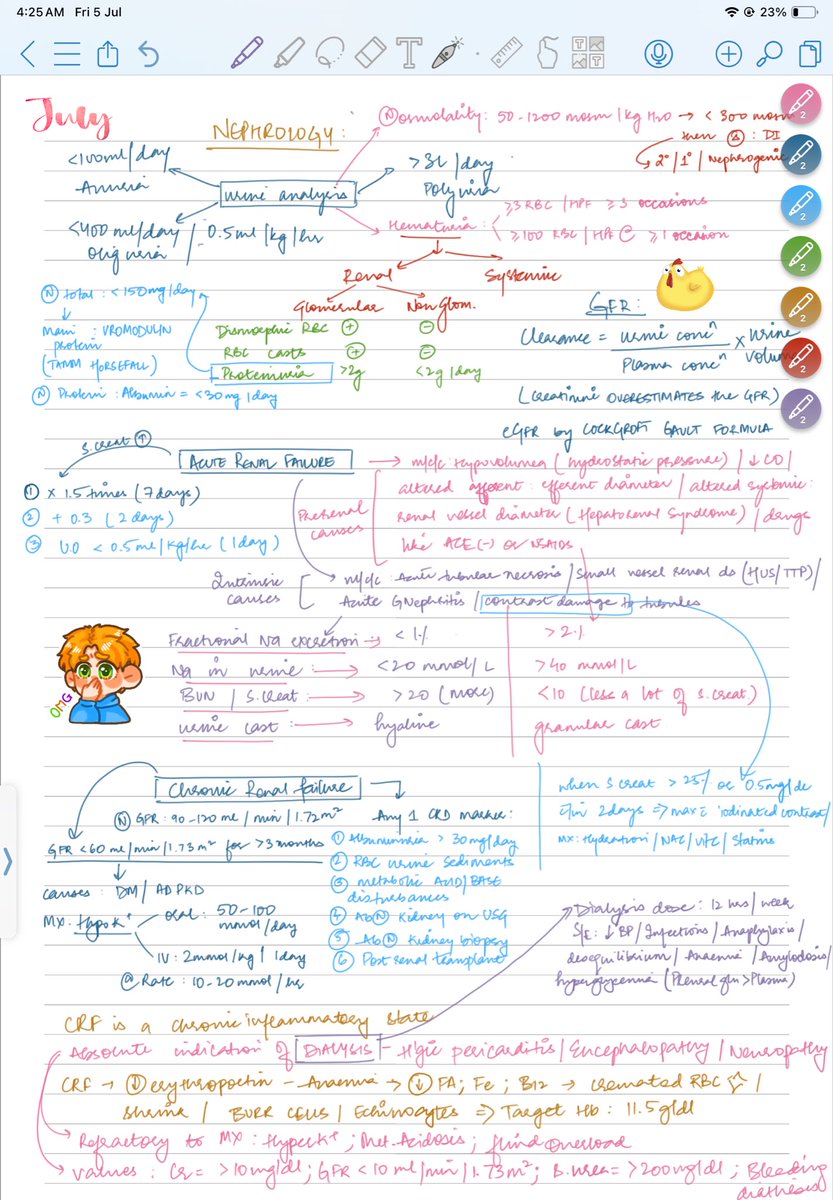 4:25 AM Fri 5 Jul
23%
July
NEPHROLOGY:
Ⓝ osmolality: 50-1200 mosm/kg H2O → < 300 mosm
then : DI
2°/1°/Nephrogenic
<100ml/day
Anuria
urine analysis
>3L/day
Polyuria
<400 ml/day / 0.5ml/kg/hr
oliguria
Hematuria:
≥3 RBC/HPF ≥3 occasions
≥100 RBC/HPF @ ≥1 occasion
Renal
Systemic
Glomerular
Non Glom.
Dismorphic RBC + -
RBC casts + -
Proteinuria >2g <2g/day
Ⓝ total: <150mg/day
Main: UROMODULIN
protein
(TAMM HORSEFALL)
Ⓝ Protein: Albumin = <30mg/day
GFR:
Clearance = urine concⁿ / Plasma concⁿ × Urine volume
(creatinine OVERESTIMATES the GFR)
eGFR by COCKGROFT GAULT FORMULA
S.creat ↑
ACUTE RENAL FAILURE
① × 1.5 times (7 days)
② + 0.3 (2 days)
③ U.O < 0.5ml/kg/hr (1day)
Prerenal
causes
→ m/c/c: Hypovolumea (hydrostatic pressure) / ↓ CO /
altered afferent: efferent diameter / altered systemic:
renal vessel diameter (Hepatorenal Syndrome) / drugs
like ACE(-) or NSAIDS
Intrinsic
causes
m/c/c: Acute tubular necrosis / Small vessel renal ds (HUS/TTP)/
Acute GNephritis / contrast damage to tubules
Fractional Na excretion → < 1% > 2%
Na in urine: → <20 mmol/L >40 mmol/L
BUN / S.creat → >20 (more) <10 (less a lot of s.creat)
urine cast: → hyaline granular cast
OMG
Chronic Renal failure
Ⓝ GFR: 90-120 ml/min/1.72m²
GFR <60 ml/min/1.73m² for >3 months
causes: DM/ADPKD
MX: Hypo K+
oral: 50-100
mmol/day
IV: 2mmol/kg/1day
@ Rate: 10-20mmol/hr
Any 1 CKD marker:
① Albuminuria > 30mg/day
② RBC urine sediments
③ metabolic ACID/BASE
disturbances
④ AbⓃ Kidney on USG
⑤ AbⓃ Kidney biopsy
⑥ Post renal transplant
when S creat > 25% or 0.5mg/dl
in 2days ⇒ max iodinated contrast/
MX: Hydration/NAC/Vit C/Statins
Dialysis dose: 12 hrs/week
S/E: ↓BP/Infections/Anaphylaxis/
desequilibrium/Anaemia/Amylodosis/
hyperglycemia (Phrenal glu>Plasma)
CRF is a chronic inflammatory state
Absolute indication of DIALYSIS - Hgic pericarditis/Encephalopathy/Neuropathy
CRF → ↓ erythropoetin - Anaemia → ↓ FA; Fe; B12 → crenated RBC /
/ BURR CELLS / Echinocytes ⇒ Target Hb: 11.5g/dl
Refractory to MX: Hyper K+; Met. Acidosis; fluid overload
values: Cr = >10mg/dl; GFR <10 ml/min/1.73m²; B.urea = >200mg/dl; Bleeding
diathesis
2
2
2
2
2
2
2